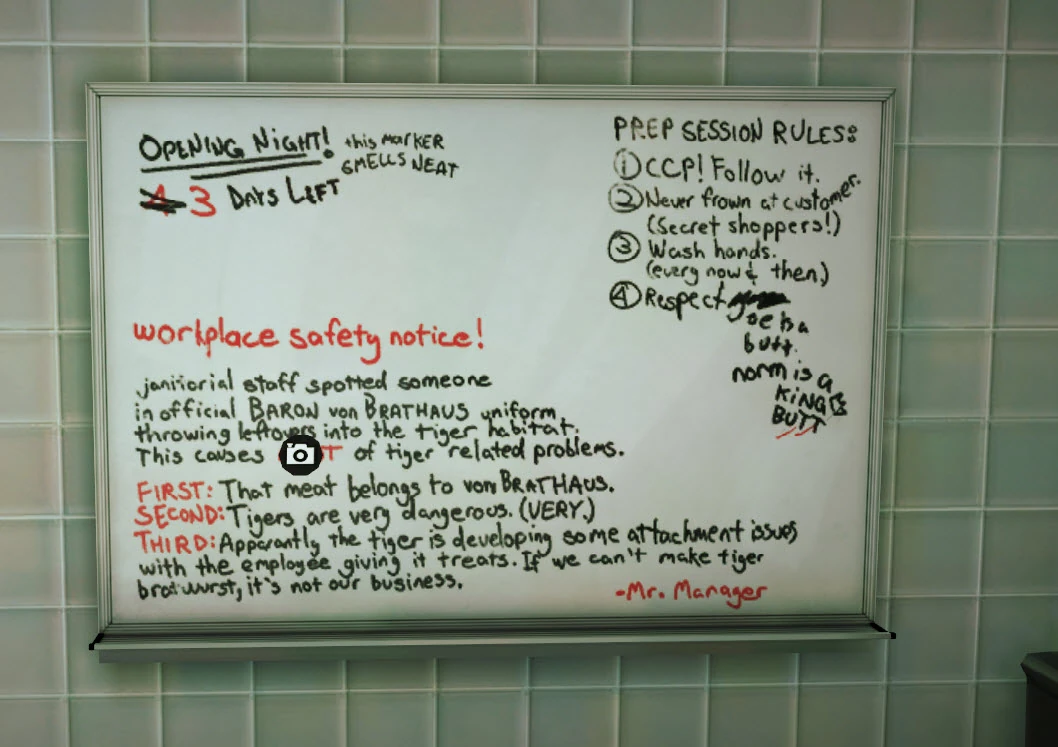 OPENING NIGHT!
this MARKER
SMELLS NEAT
3 DAYS LEFT
PREP SESSION RULES:
① CCP! Follow it.
② Never frown at customer.
(Secret shoppers!)
③ Wash hands.
(every now & then)
④ Respect
joe is a
butt.
norm is a
KING
BUTT
workplace safety notice!
janitorial staff spotted someone
in official BARON von BRATHAUS uniform
throwing leftovers into the tiger habitat.
This causes of tiger related problems.
FIRST: That meat belongs to von BRATHAUS.
SECOND: Tigers are very dangerous. (VERY.)
THIRD: Apparantly the tiger is developing some attachment issues
with the employee giving it treats. If we can't make tiger
bratwurst, it's not our business.
-Mr. Manager